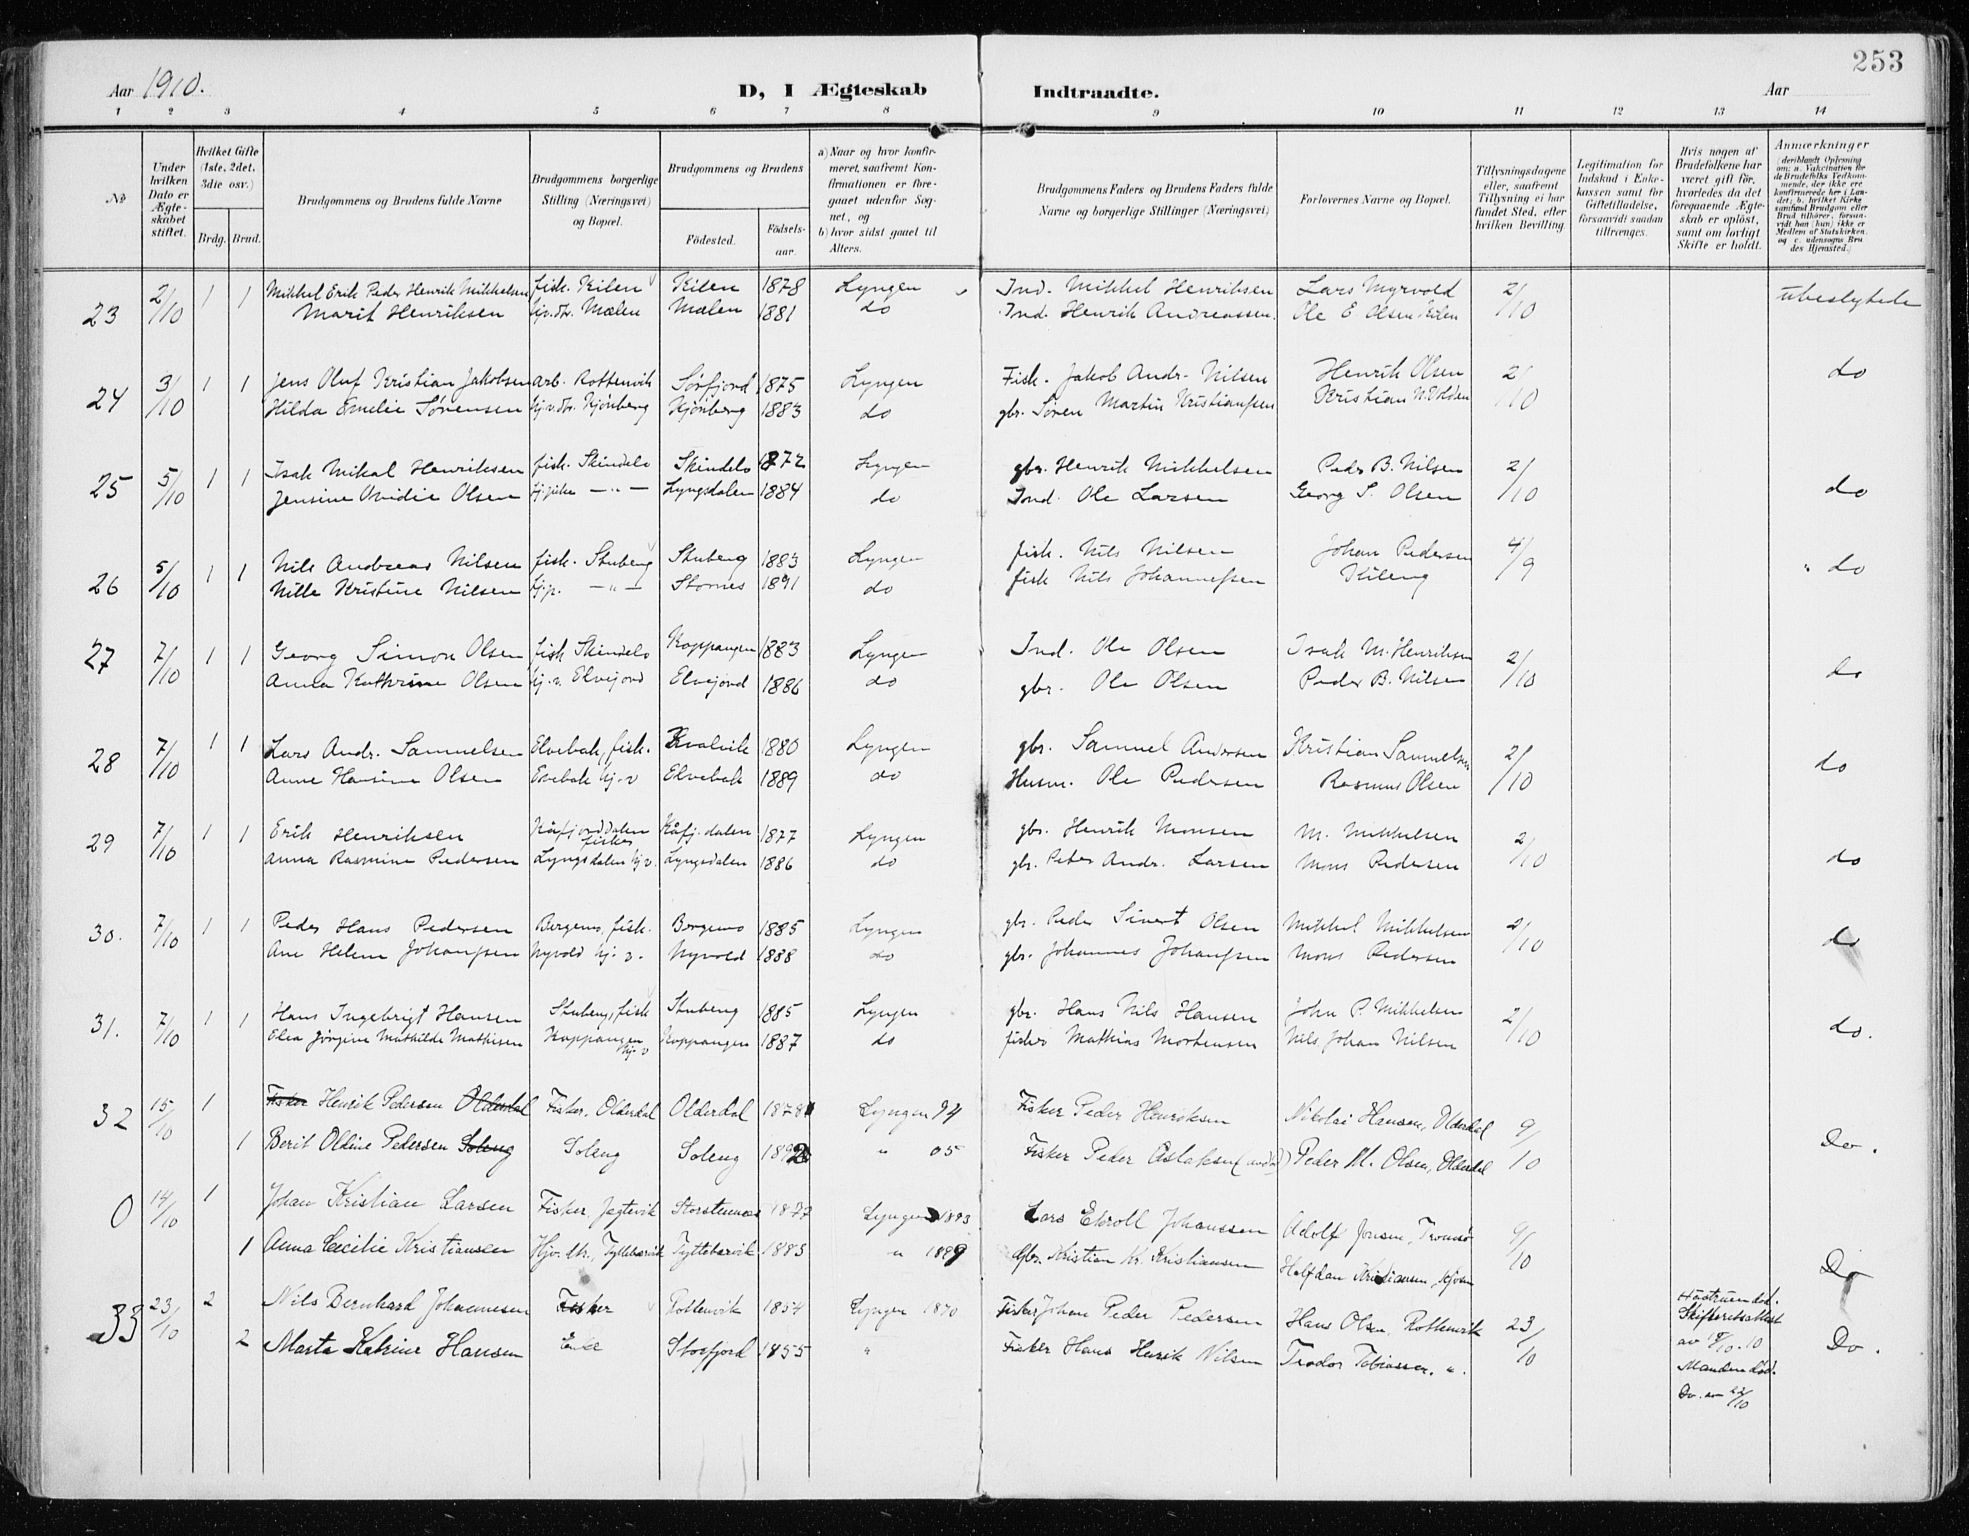 253
Aar 1910.
D, I Ægteskab Indtraadte.
Aar
1 2 3 4 5 6 7 8 9 10 11 12 13 14
No
Under hvilken Dato er Ægteskabet stiftet.
Hvilket Gifte (1ste, 2det, 3die osv.)
Brdg. Brud.
Brudgommens og Brudens fulde Navne
Brudgommens borgerlige Stilling (Næringsvei) og Bopæl.
Brudgommens og Brudens
Fødested. Fødselsaar.
a) Naar og hvor konfirmeret, saafremt Konfirmationen er foregaaet udenfor Sognet, og
b) hvor sidst gaaet til Alters.
Brudgommens Faders og Brudens Faders fulde Navne og borgerlige Stillinger (Næringsvei)
Forlovernes Navne og Bopæl.
Tillysningsdagene eller, saafremt Tillysning ei har fundet Sted, efter hvilken Bevilling.
Legitimation for Indskud i Enkekassen samt for Giftetilladelse, forsaavidt saadan tiltrænges.
Hvis nogen af Brudefolkene har været gift før, hvorledes da det foregaaende Ægteskab er opløst, samt om lovligt Skifte er holdt.
Anmærkninger
23 2/10 1 1 Mikkel Erik Peder Henrik Mikkelsen fisk. Kilen Kilen 1878 Lyngen Ind. Mikkel Henriksen Lars Myrvold 2/10 ubeslytede
Marit Henriksen hjv. dtr. Mælen Mælen 1881 do Ind. Henrik Andreassen. Ole E Olsen Kilen
24 3/10 1 1 Jens Oluf Kristian Jakobsen arb. Rottenvik Sørfjord 1875 Lyngen Fisk. Jakob Andr. Nilsen Henrik Olsen 2/10 do
Hilda Emelie Sørensen hj.v.dtr. Kjosberg Kjosberg 1883 do gbr. Søren Martin Kristianssen Kristian N. Volden
25 5/10 1 1 Isak Mikal Henriksen fisk. Skindelv Skindelv 1872 Lyngen gbr. Henrik Mikkelsen Peder B. Nilsen 2/10 do
Jensine Ovidie Olsen hjpike — „ — Lyngsdalen 1884 do Ind. Ole Larsen Georg S. Olsen
26 5/10 1 1 Nils Andreas Nilsen fisk. Stubeng Stubeng 1883 Lyngen fisk. Nils Nilsen Johan Pedersen 4/9 do
Nille Kristine Nilsen hj.p. — „ — Stornes 1891 do fisk Nils Johannessen Kileng
27 7/10 1 1 Georg Simon Olsen fisk Skindelv Koppangen 1883 Lyngen Ind. Ole Olsen Isak M. Henriksen 2/10 do
Anna Kathrine Olsen hj. v. Elvejord Elvejord 1886 do gbr. Ole Olsen Peder B. Nilsen
28 7/10 1 1 Lars Andr. Samuelsen Elvebak, fisk. Kvalvik 1880 Lyngen gbr. Samuel Andersen Kristian Samuelsen 2/10 do
Anne Hansine Olsen Elvebak hj. v Elvebak 1889 do Husm. Ole Pedersen Rasmus Olsen
29 7/10 1 1 Erik Henriksen Kåfjorddalen fisker Kåfj. dalen 1877 Lyngen gbr. Henrik Monsen M. Mikkelsen 2/10 do
Anna Rasmine Pedersen Lyngsdalen hj v. Lyngsdalen 1886 do gbr. Peter Andr. Larsen Mons Pedersen
30. 7/10 1 1 Peder Hans Pedersen Borgenes, fisk. Borgenes 1885 Lyngen gbr. Peder Sivert Olsen Mikkel Mikkelsen 2/10 do
Ane Helene Johanssen Nyvold hj. v. Nyvold 1888 do gbr. Johannes Johanssen Mons Pedersen
31. 7/10 1 1 Hans Ingebrigt Hansen Stubeng, fisk Stubeng 1885 Lyngen gbr. Hans Nils Hansen John P. Mikkelsen 2/10 do.
Elea Jørgine Mathilde Mathisen Koppangen hj. v Koppangen 1887 do fisker Mathias Mortensen Nils Johan Nilsen
32 15/10 1 Fisker Henrik Pedersen Olderdal Fisker, Olderdal Olderdal 1878 Lyngen 94 Fisker Peder Henriksen Nikolai Hansen, Olderdal 9/10 Do.
1 Berit Oldine Pedersen Soleng Soleng Soleng 1892 " 05 Fisker Peder Aslaksen Peder M. Olsen, Olderdal
0 14/10 1 Johan Kristian Larsen Fisker, Jægtevik Storsteinnes 1877 Lyngen 1893 Lars Ekroll Johanssen Adolf Jensen, Tromsø 9/10
1 Anna Cecilie Kristiansen Hjv. dtr., Tyttebærvik Tyttebærvik 1883 " 1899 Gbr. Kristian Kr. Kristiansen Halfdan Kristiansen, Kjosen Do
33 23/10 2 Nils Bernhard Johannesen Fisker Rottenvik 1854 Lyngen 1870 Fisker Johan Peder Pedersen Hans Olsen, Rottenvik 23/10 Hustruen død. Skifteretsattest av 8/10. 10 Do.
2 Marta Katrine Hansen Enke Storfjord 1855 " Fisker Hans Henrik Nilsen Teodor Tobiassen. „. Manden død. Do. av 22/10